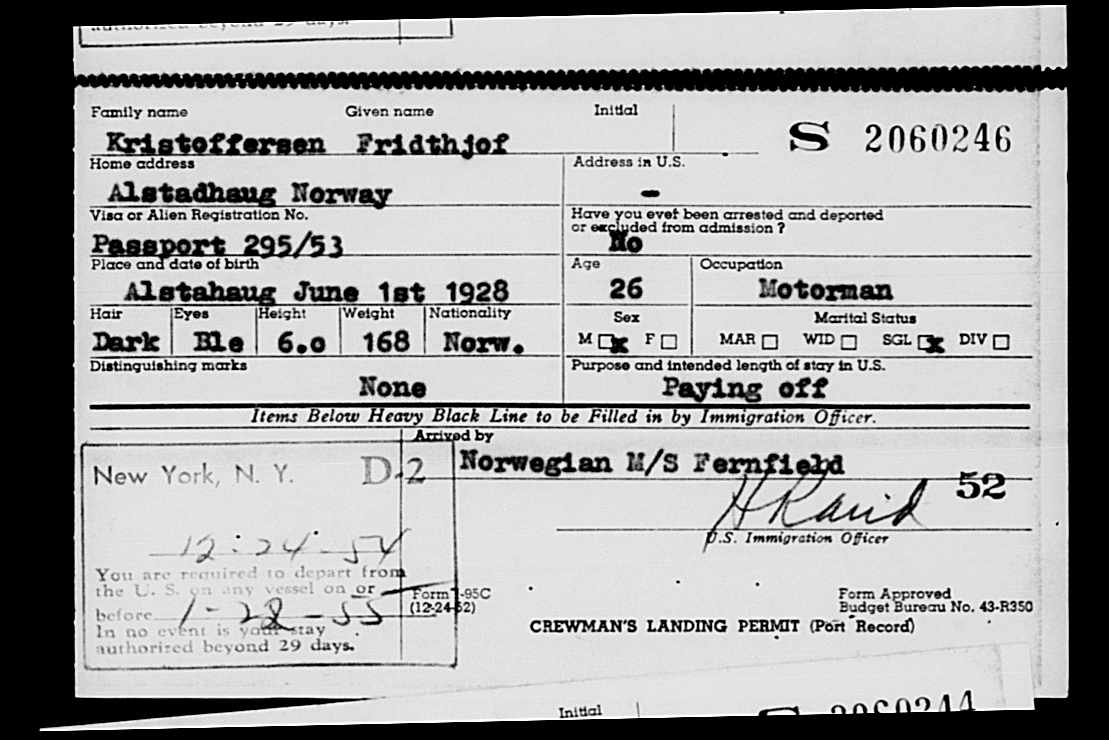 authorized beyond 29 days.
Family name Given name Initial
Kristoffersen Fridthjof
S 2060246
Home address Address in U.S.
Alstadhaug Norway -
Visa or Alien Registration No. Have you ever been arrested and deported
or excluded from admission?
Passport 295/53 No
Place and date of birth Age Occupation
Alstahaug June 1st 1928 26 Motorman
Hair Eyes Height Weight Nationality Sex Marital Status
Dark Ble 6.0 168 Norw. M x F MAR WID SGL x DIV
Distinguishing marks Purpose and intended length of stay in U.S.
None Paying off
Items Below Heavy Black Line to be Filled in by Immigration Officer.
Arrived by
New York, N. Y. D-2 Norwegian M/S Fernfield
52
U.S. Immigration Officer
12-24-54
You are required to depart from
the U. S. on any vessel on or
before 1-28-55
In no event is your stay
authorized beyond 29 days.
Form I-95C
(12-24-52)
Form Approved
Budget Bureau No. 43-R350
CREWMAN'S LANDING PERMIT (Port Record)
Initial S 2060244